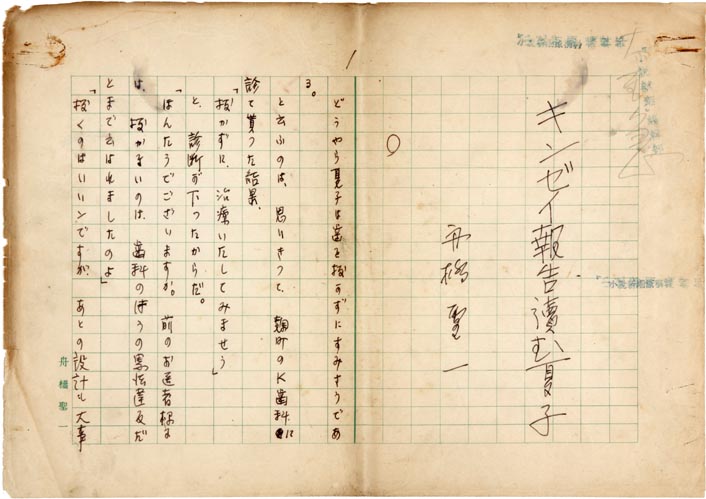 キンゼイ報告讀む夏子
舟橋聖一
どうやら夏子は歯を抜かずにすみさうであ
る。
と云ふのは、思ひきつて、麹町のK歯科に
診て貰つた結果、
「抜かずに、治療いたしてみませう」
と、診断が下つたからだ。
「ほんたうでございますか。前のお医者様で
は、抜かないのは、歯科のはうの憲法違反だ
とまで云はれましたのよ」
「抜くのはいいンですが、あとの設計も大事
舟橋聖一